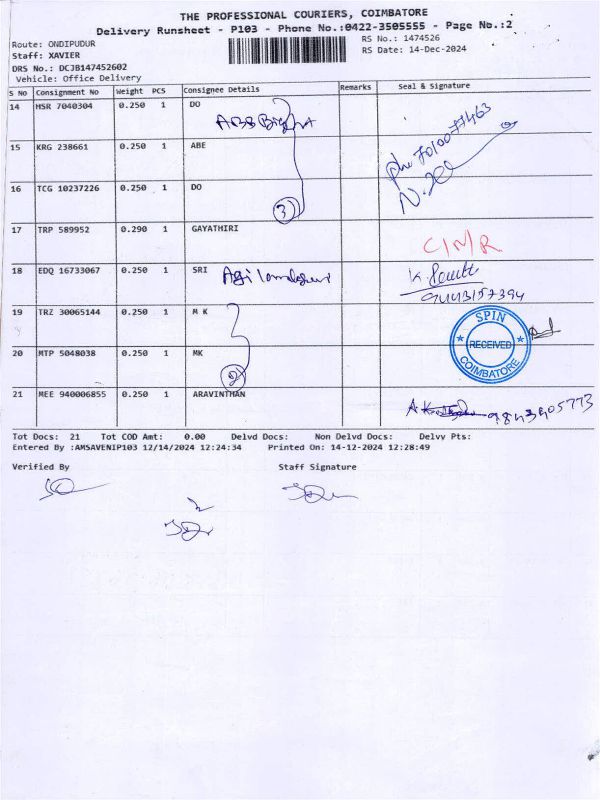 THE PROFESSIONAL COURIERS, COIMBATORE
Delivery Runsheet - P103 - Phone No.:0422-3505555 - Page No.:2
Route: ONDIPUDUR
RS No.: 1474526
Staff: XAVIER
RS Date: 14-Dec-2024
DRS No.: DCJB147452602
Vehicle: Office Delivery
S No Consignment No Weight PCS Consignee Details Remarks Seal & Signature
14 HSR 7040304 0.250 1 DO
ph: 7010077463
15 KRG 238661 0.250 1 ABE
16 TCG 10237226 0.250 1 DO
3
17 TRP 589952 0.290 1 GAYATHIRI
18 EDQ 16733067 0.250 1 SRI
9443157394
19 TRZ 30065144 0.250 1 M K
SPIN
RECEIVED
COIMBATORE
20 MTP 5048038 0.250 1 MK
2
21 MEE 940006855 0.250 1 ARAVINTHAN
9843905773
Tot Docs: 21 Tot COD Amt: 0.00 Delvd Docs: Non Delvd Docs: Delvy Pts:
Entered By :AMSAVENIP103 12/14/2024 12:24:34 Printed On: 14-12-2024 12:28:49
Verified By Staff Signature